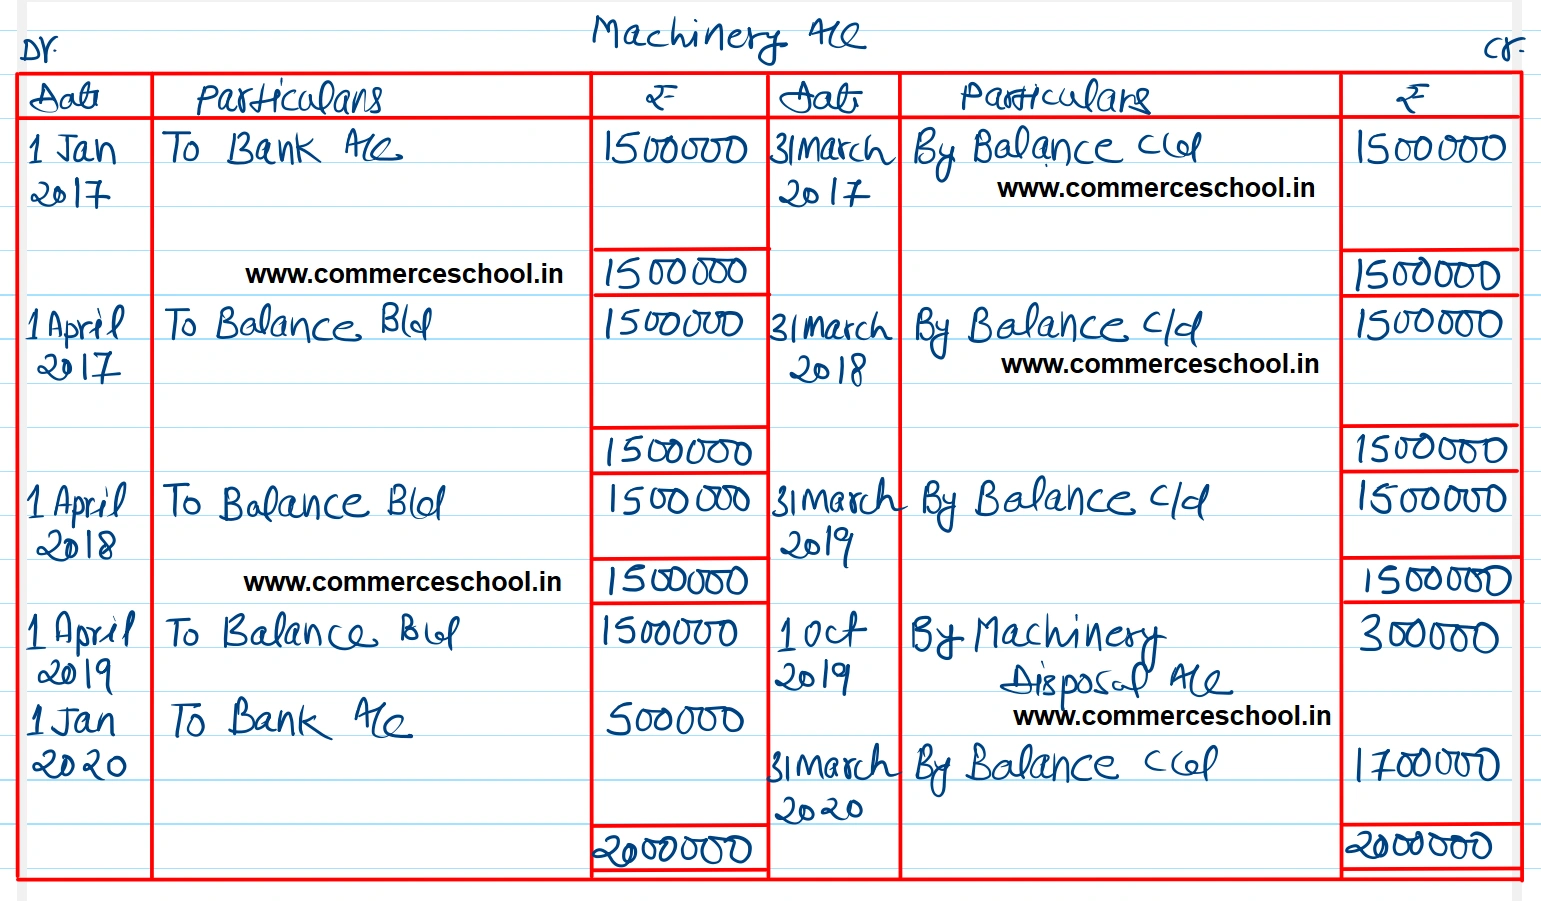 Machinery A/c
Dr. Cr.
Date Particulars ₹ Date Particulars ₹
1 Jan To Bank A/c 1500000 31 March By Balance c/d 1500000
2017 2017 www.commerceschool.in
www.commerceschool.in 1500000 1500000
1 April To Balance B/d 1500000 31 March By Balance c/d 1500000
2017 2018 www.commerceschool.in
1500000 1500000
1 April To Balance B/d 1500000 31 March By Balance c/d 1500000
2018 2019
www.commerceschool.in 1500000 1500000
1 April To Balance B/d 1500000 1 Oct By Machinery 300000
2019 2019 Disposal A/c
1 Jan To Bank A/c 500000 www.commerceschool.in
2020 31 March By Balance c/d 1700000
2020
2000000 2000000